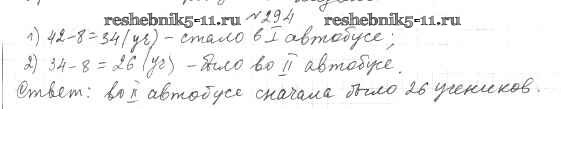 reshebnik5-11.ru №294 reshebnik5-11.ru
1) 42-8=34(уч) - стало в I автобусе;
2) 34-8=26 (уч) - было во II автобусе.
Ответ: во II автобусе сначала было 26 учеников.